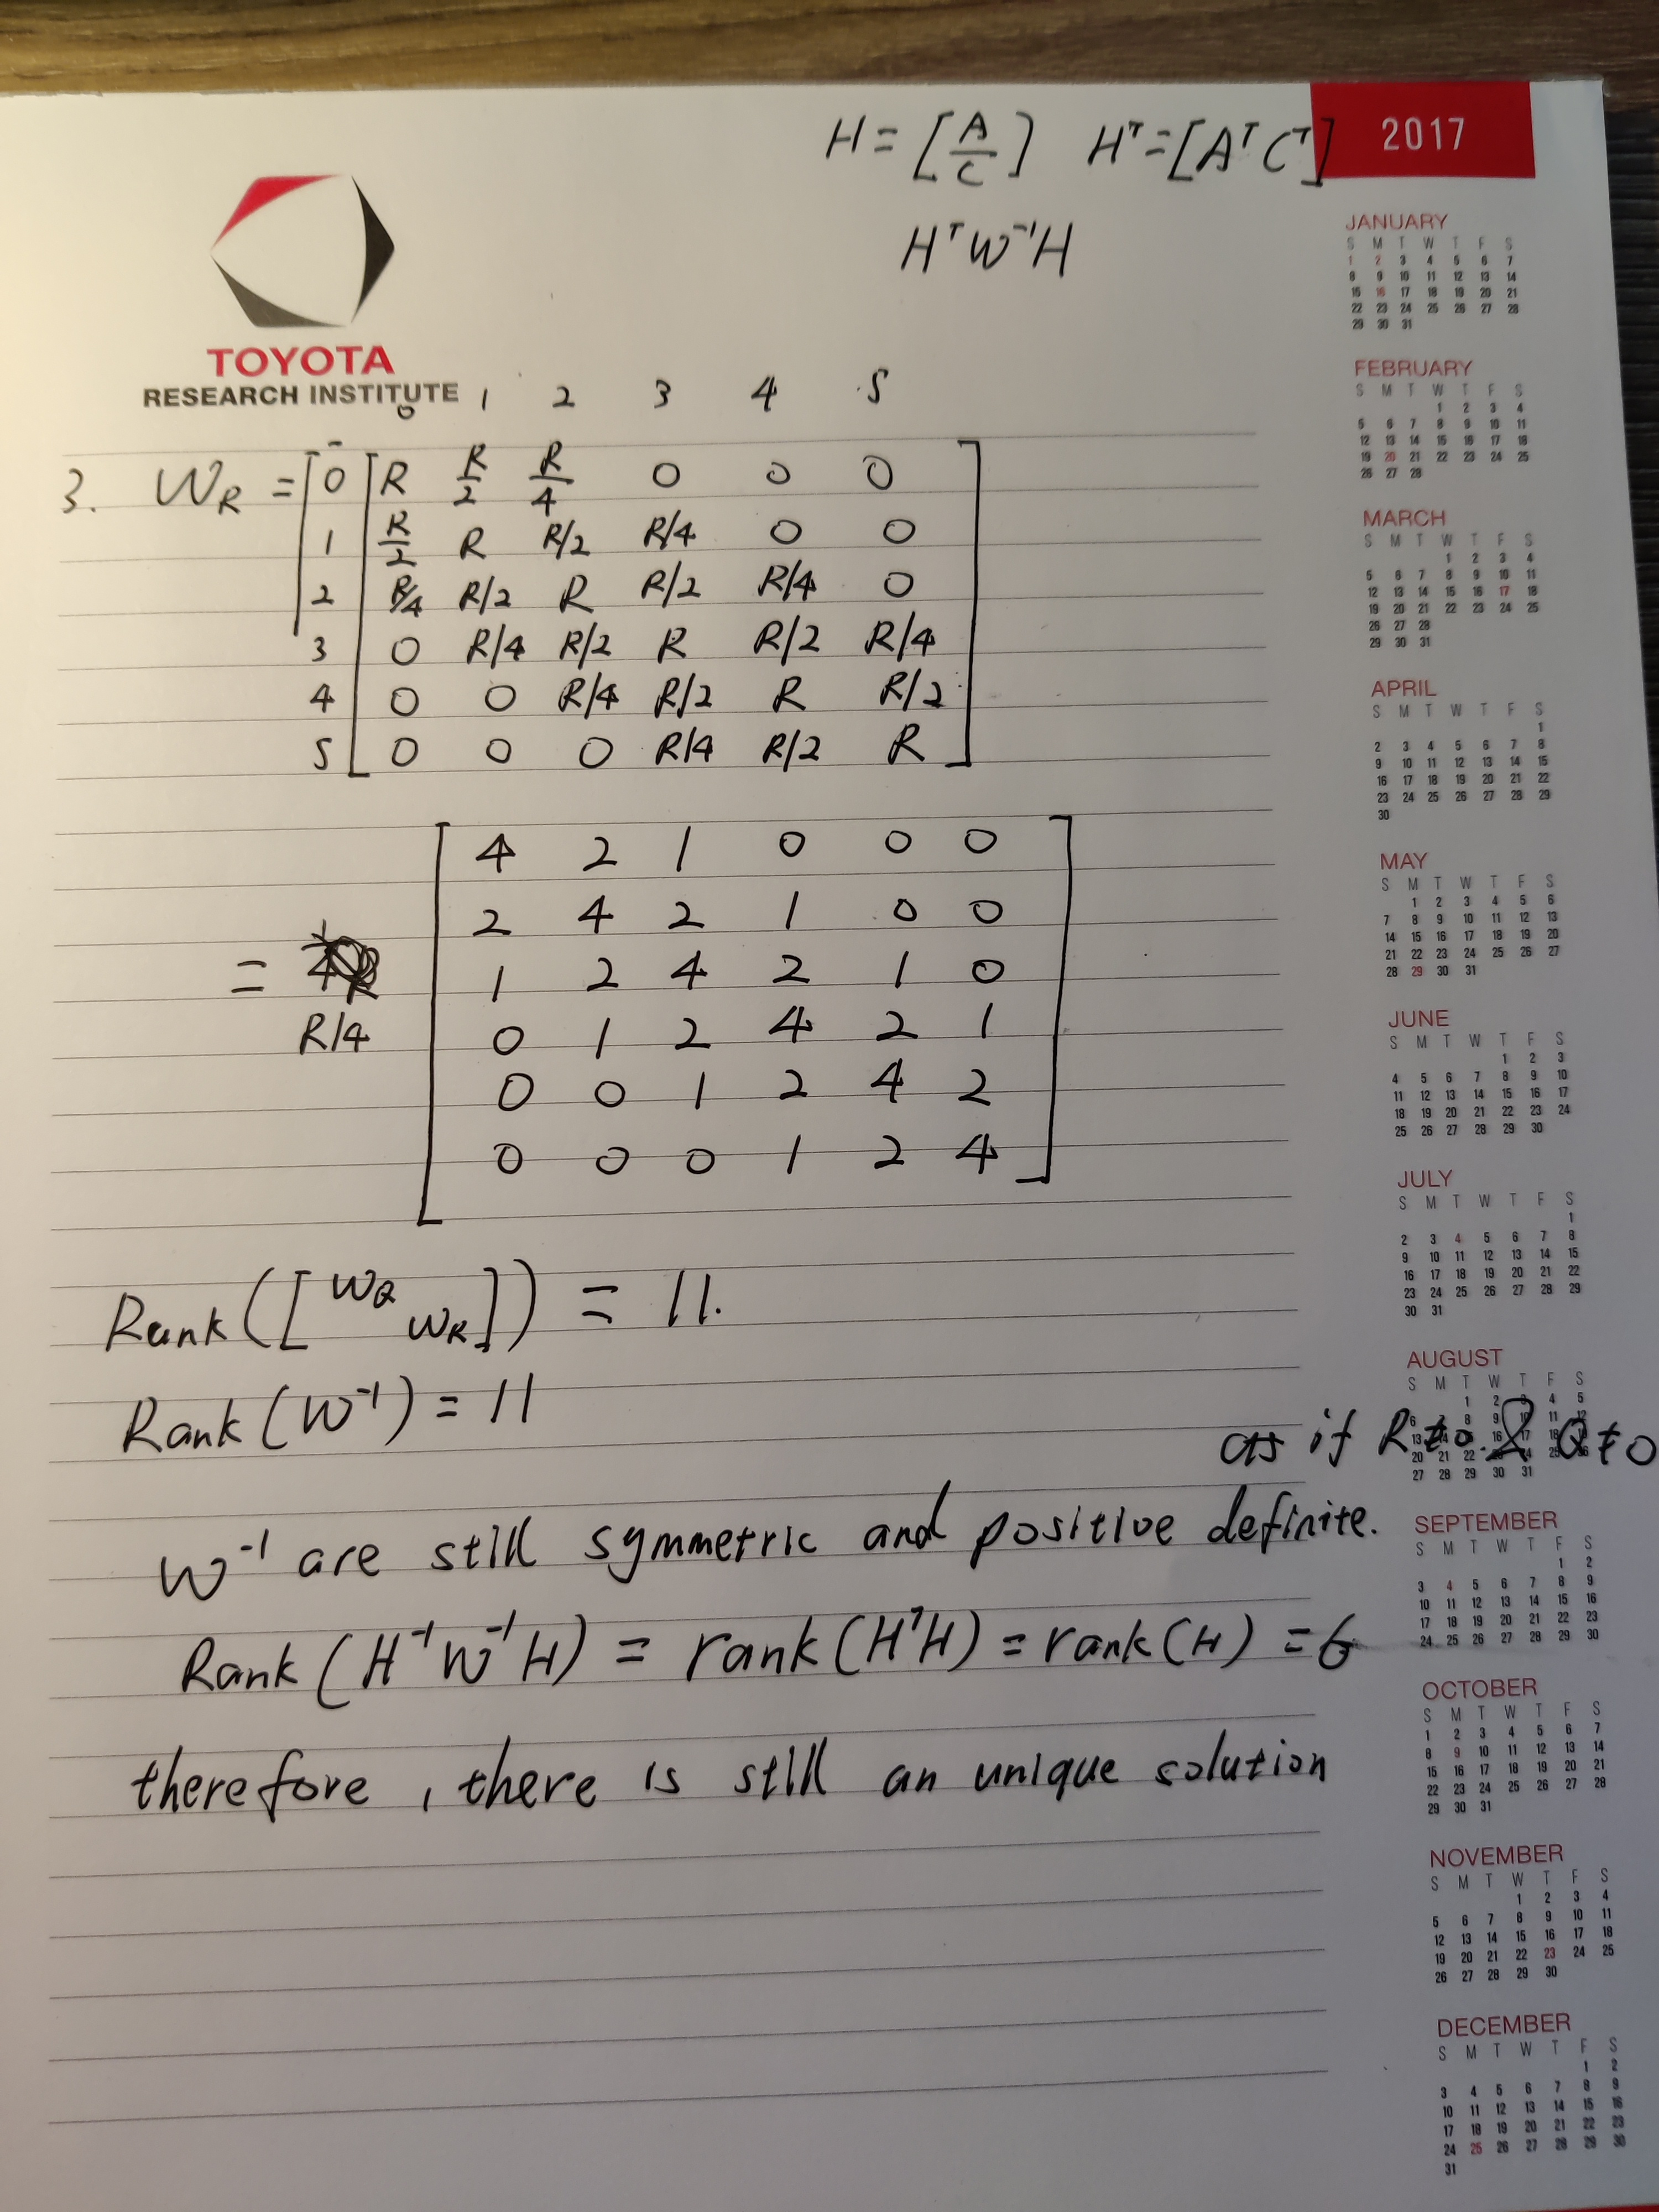 H = [A/C] Hᵀ = [Aᵀ Cᵀ]
2017
HᵀW⁻¹H
TOYOTA
RESEARCH INSTITUTE
0 1 2 3 4 5
3. W_R = 0 R R/2 R/4 0 0 0
1 R/2 R R/2 R/4 0 0
2 R/4 R/2 R R/2 R/4 0
3 0 R/4 R/2 R R/2 R/4
4 0 0 R/4 R/2 R R/2
5 0 0 0 R/4 R/2 R
4 2 1 0 0 0
2 4 2 1 0 0
= 1 2 4 2 1 0
R/4 0 1 2 4 2 1
0 0 1 2 4 2
0 0 0 1 2 4
Rank([W_Q W_R]) = 11.
Rank(W⁻¹) = 11
as if R≠0 & Q≠0
W⁻¹ are still symmetric and positive definite.
Rank(H⁻¹W⁻¹H) = rank(HᵀH) = rank(H) = 6
therefore, there is still an unique solution
JANUARY
S M T W T F S
1 2 3 4 5 6 7
8 9 10 11 12 13 14
15 16 17 18 19 20 21
22 23 24 25 26 27 28
29 30 31
FEBRUARY
S M T W T F S
1 2 3 4
5 6 7 8 9 10 11
12 13 14 15 16 17 18
19 20 21 22 23 24 25
26 27 28
MARCH
S M T W T F S
1 2 3 4
5 6 7 8 9 10 11
12 13 14 15 16 17 18
19 20 21 22 23 24 25
26 27 28
29 30 31
APRIL
S M T W T F S
1
2 3 4 5 6 7 8
9 10 11 12 13 14 15
16 17 18 19 20 21 22
23 24 25 26 27 28 29
30
MAY
S M T W T F S
1 2 3 4 5 6
7 8 9 10 11 12 13
14 15 16 17 18 19 20
21 22 23 24 25 26 27
28 29 30 31
JUNE
S M T W T F S
1 2 3
4 5 6 7 8 9 10
11 12 13 14 15 16 17
18 19 20 21 22 23 24
25 26 27 28 29 30
JULY
S M T W T F S
1
2 3 4 5 6 7 8
9 10 11 12 13 14 15
16 17 18 19 20 21 22
23 24 25 26 27 28 29
30 31
AUGUST
S M T W T F S
1 2 4 5
6 8 9 11 12
13 16 17
20 21 22 24 25
27 28 29 30 31
SEPTEMBER
S M T W T F S
1 2
3 4 5 6 7 8 9
10 11 12 13 14 15 16
17 18 19 20 21 22 23
24 25 26 27 28 29 30
OCTOBER
S M T W T F S
1 2 3 4 5 6 7
8 9 10 11 12 13 14
15 16 17 18 19 20 21
22 23 24 25 26 27 28
29 30 31
NOVEMBER
S M T W T F S
1 2 3 4
5 6 7 8 9 10 11
12 13 14 15 16 17 18
19 20 21 22 23 24 25
26 27 28 29 30
DECEMBER
S M T W T F S
1 2
3 4 5 6 7 8 9
10 11 12 13 14 15 16
17 18 19 20 21 22 23
24 25 26 27 28 29 30
31